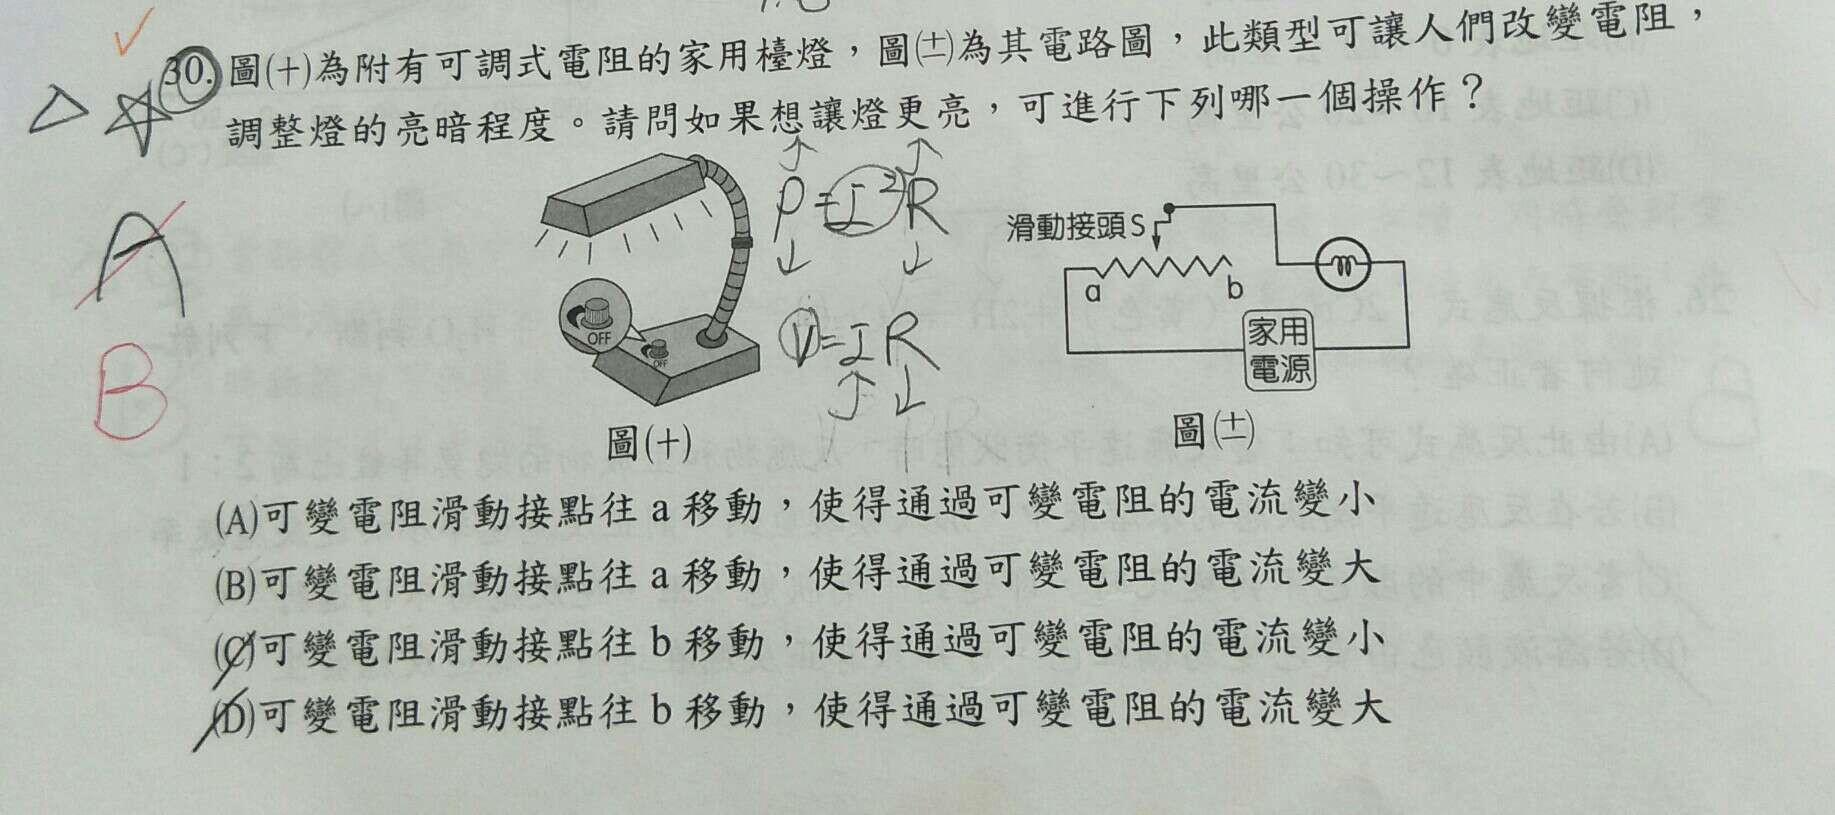 30. 圖(十)為附有可調式電阻的家用檯燈，圖(十一)為其電路圖，此類型可讓人們改變電阻，
調整燈的亮暗程度。請問如果想讓燈更亮，可進行下列哪一個操作？
A
B
P=I²R
V=IR
OFF
OFF
滑動接頭S
a
b
家用
電源
圖(十)
圖(十一)
(A)可變電阻滑動接點往 a 移動，使得通過可變電阻的電流變小
(B)可變電阻滑動接點往 a 移動，使得通過可變電阻的電流變大
(C)可變電阻滑動接點往 b 移動，使得通過可變電阻的電流變小
(D)可變電阻滑動接點往 b 移動，使得通過可變電阻的電流變大